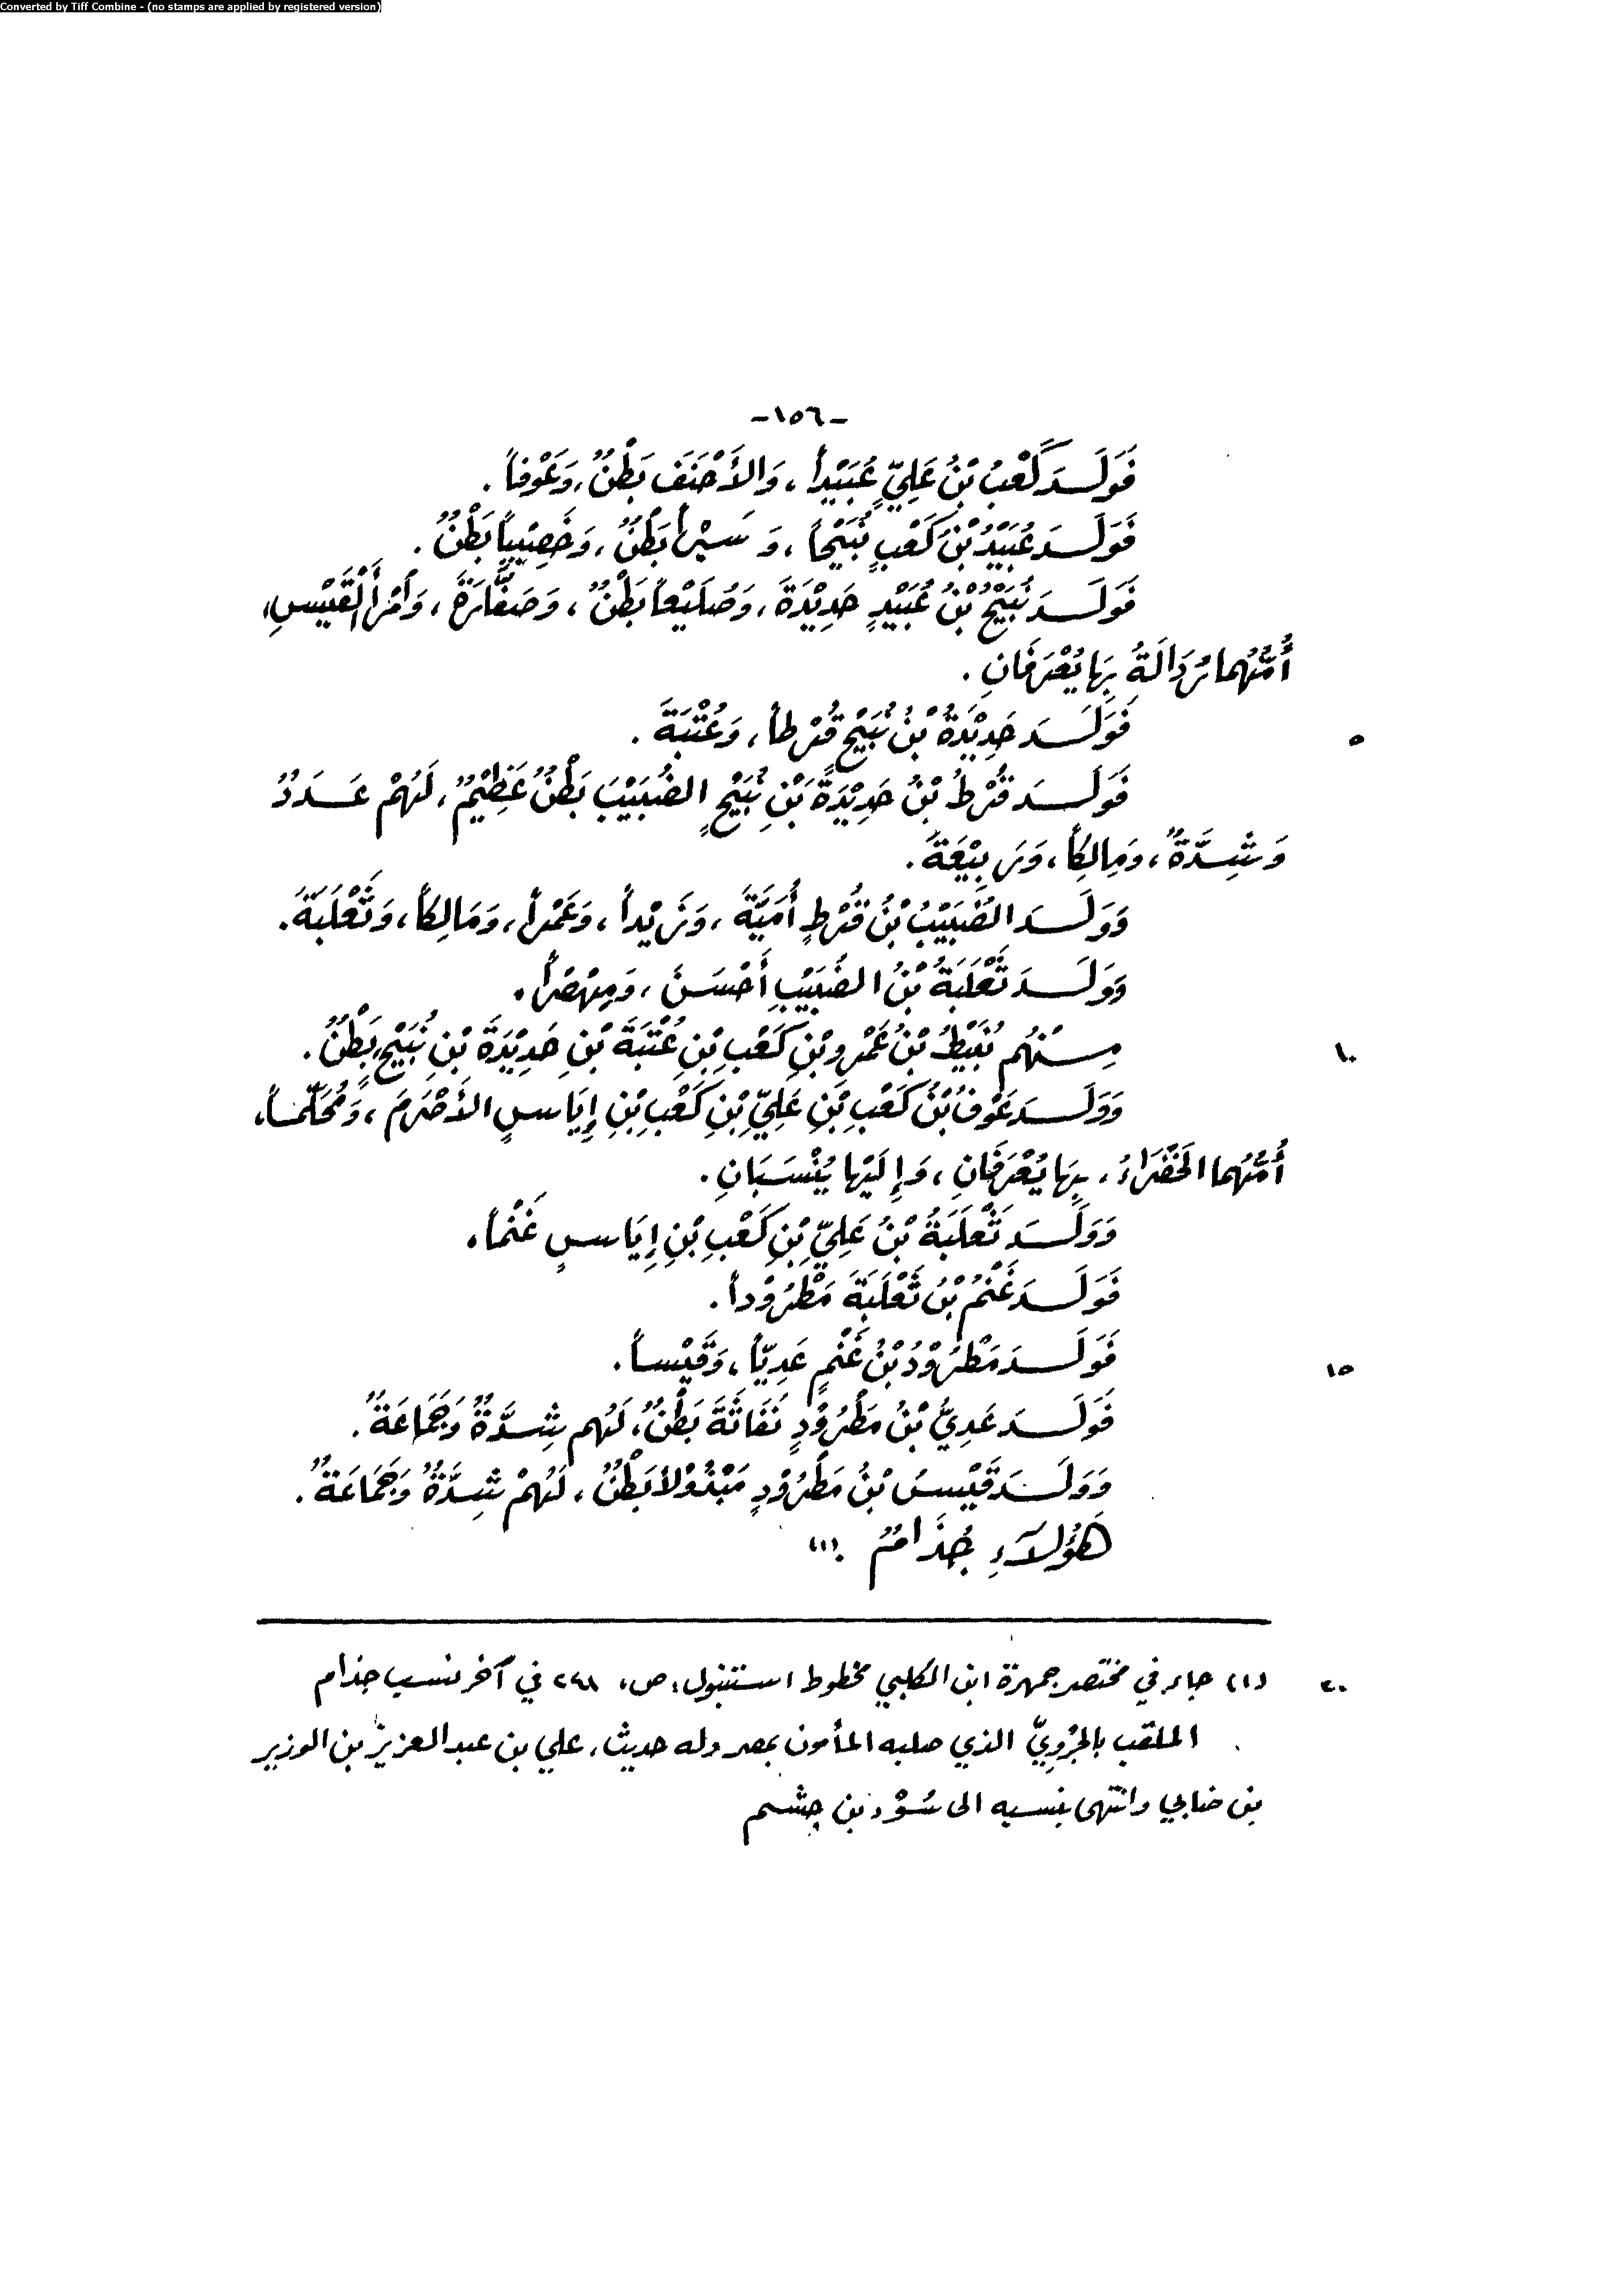 Converted by Tiff Combine - (no stamps are applied by registered version)
-١٥٦-
فَوَلَدَ كَعْبُ بْنُ عَلِيٍّ عُبَيْداً، وَالأَحْنَفَ بَطْنٌ، وَعَوْفاً.
فَوَلَدَ عُبَيْدُ بْنُ كَعْبٍ نُبَيْحاً، وَسَيْراً بَطْنٌ، وَخَصِيْباً بَطْنٌ.
فَوَلَدَ نُبَيْحُ بْنُ عُبَيْدٍ حَدِيْدَةَ، وَصُلَيْعاً بَطْنٌ، وَصَفَّارَةَ، وَأمْرَأَ القَيْسِ،
أُمُّهُما رَدَالَةُ بِهَا يُعْرَفَانِ.
فَوَلَدَ حَدِيْدَةُ بْنُ نُبَيْحٍ قُرْطاً، وَعُتْبَةَ.
٥
فَوَلَدَ قُرْطُ بْنُ حَدِيْدَةَ بْنِ نُبَيْحٍ الضُبَيْبَ بَطْنٌ عَظِيْمٌ، لَهُمْ عَدَدٌ
وَشِدَّةٌ، وَمَالِكاً، وَرَبِيْعَةَ.
وَوَلَدَ الضُبَيْبُ بْنُ قُرْطٍ أُمَيَّةَ، وَزَيْداً، وَعَمْراً، وَمَالِكاً، وَثَعْلَبَةَ.
وَوَلَدَ ثَعْلَبَةُ بْنُ الضُبَيْبِ أَحْسَنَ، وَمِهْصَراً.
مِنْهُم نُعَيْطُ بْنُ عَمْرِو بْنِ كَعْبِ بْنِ عُتْبَةَ بْنِ حَدِيْدَةَ بْنِ نُبَيْحٍ، بَطْنٌ.
١٠
وَوَلَدَ عَوْفُ بْنُ كَعْبِ بْنِ عَلِيِّ بْنِ كَعْبِ بْنِ إِيَاسٍ الأَصْرَمَ، وَمُحَلَّماً،
أُمُّهُما الخَضْرَاءُ، بِهَا يُعْرَفَانِ، وَإِلَيْهَا يُنْسَبَانِ.
وَوَلَدَ ثَعْلَبَةُ بْنُ عَلِيِّ بْنِ كَعْبِ بْنِ إِيَاسٍ غَنْماً.
فَوَلَدَ غَنْمُ بْنُ ثَعْلَبَةَ مَطْرُوْداً.
فَوَلَدَ مَطْرُوْدُ بْنُ غَنْمٍ عَدِيّاً، وَقَيْساً.
١٥
فَوَلَدَ عَدِيُّ بْنُ مَطْرُوْدٍ نَفَاثَةَ بَطْنٌ، لَهُم شِدَّةٌ وَجَمَاعَةٌ.
وَوَلَدَ قَيْسُ بْنُ مَطْرُوْدٍ مَبْذُوْلاً بَطْنٌ، لَهُمْ شِدَّةٌ وَجَمَاعَةٌ.
هَؤُلَاءِ جُذَامٌ.(١)
(١) جاء في مختصر جمهرة ابن الكلبي مخطوط استنبول: ص، ٢٤٨ في آخر نسب جذام
٢٠
الملقب بالجَرَوِيّ الذي صلبه المأمون بمصر وله حديث، علي بن عبد العزيز بن الوزير
بن ضابي وانتهى بنسبه الى سُوْد بن جشم